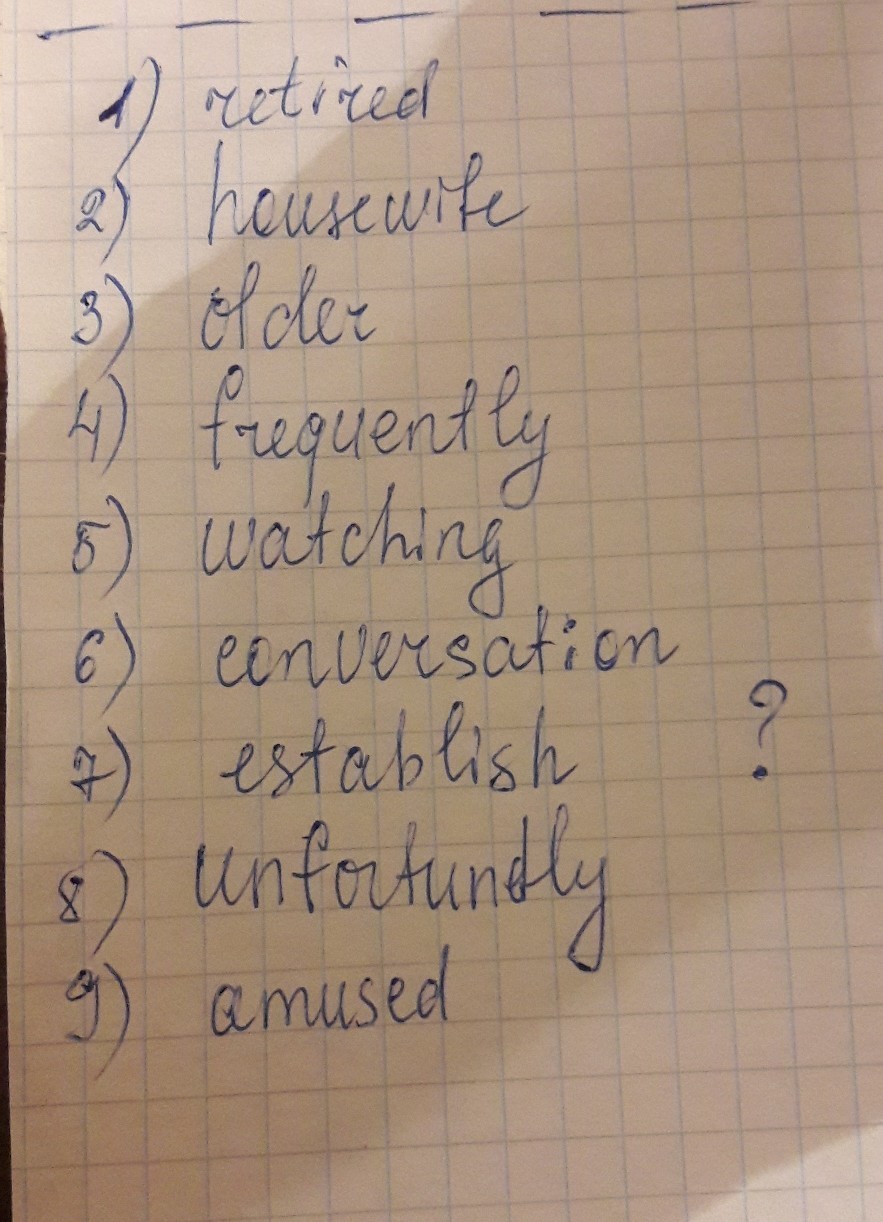 1) retired
2) housewife
3) older
4) frequently
5) watching
6) conversation
7) establish ?
8) unfortundly
9) amused